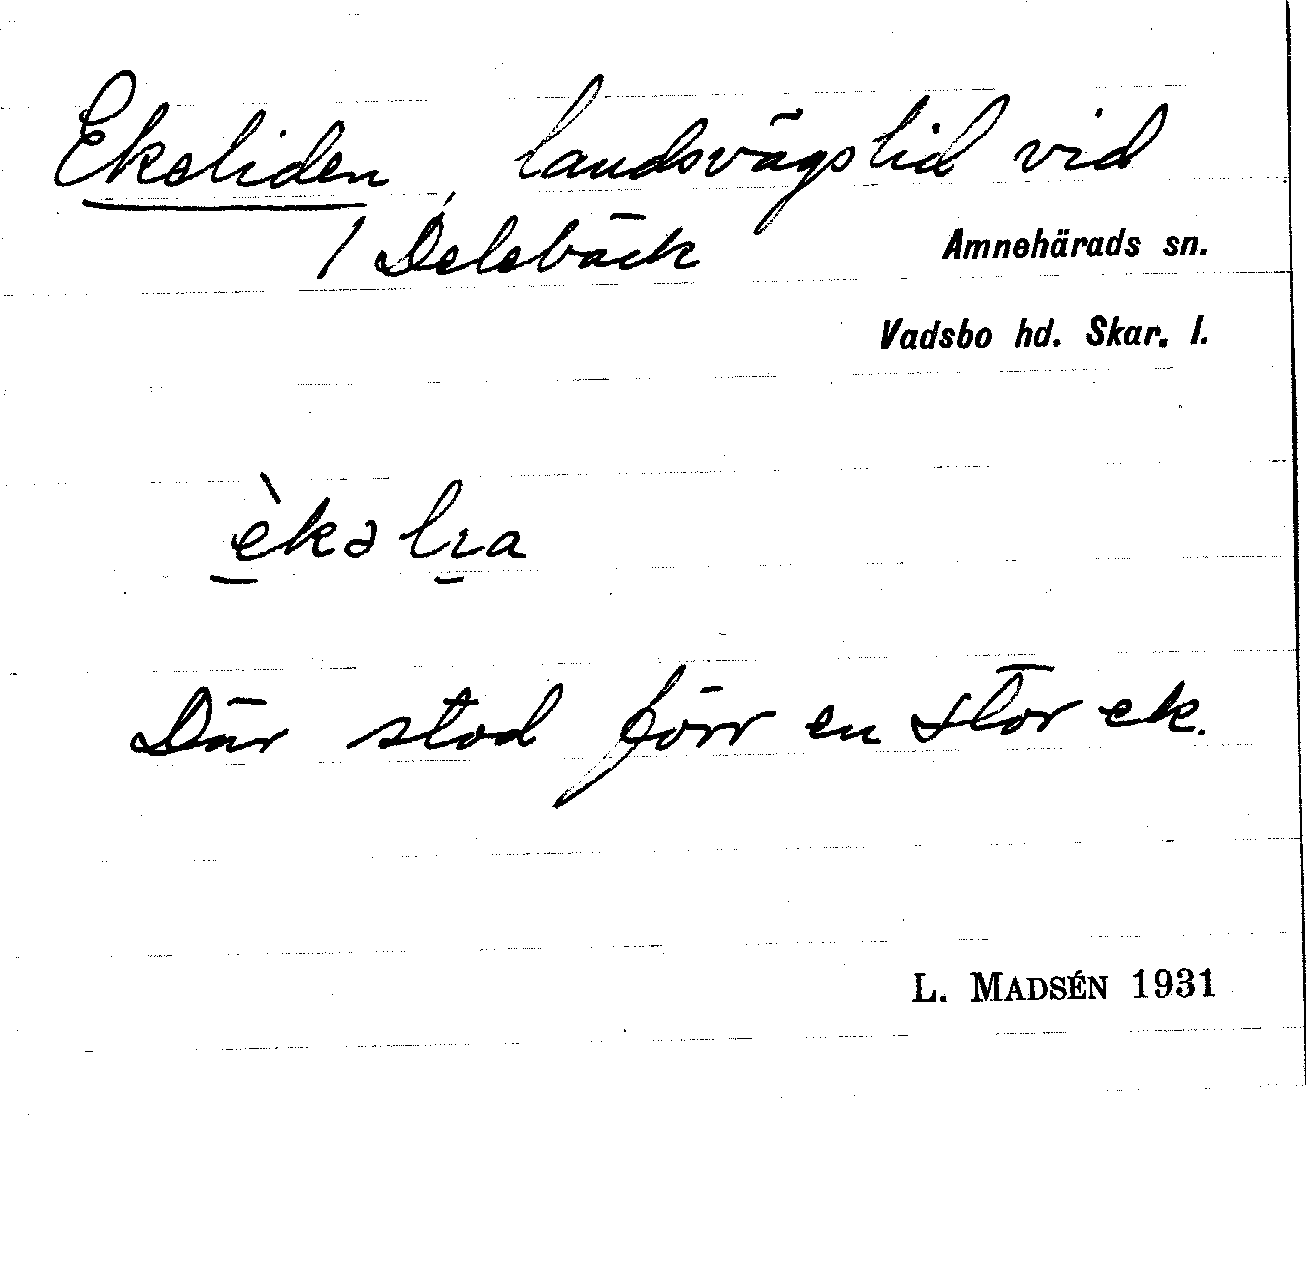 Ekeliden, landsvägslid vid
1 Delebäck
Amnehärads sn.
Vadsbo hd. Skar. l.
èkəlɩa
Där stod förr en stor ek.
L. MADSÉN 1931